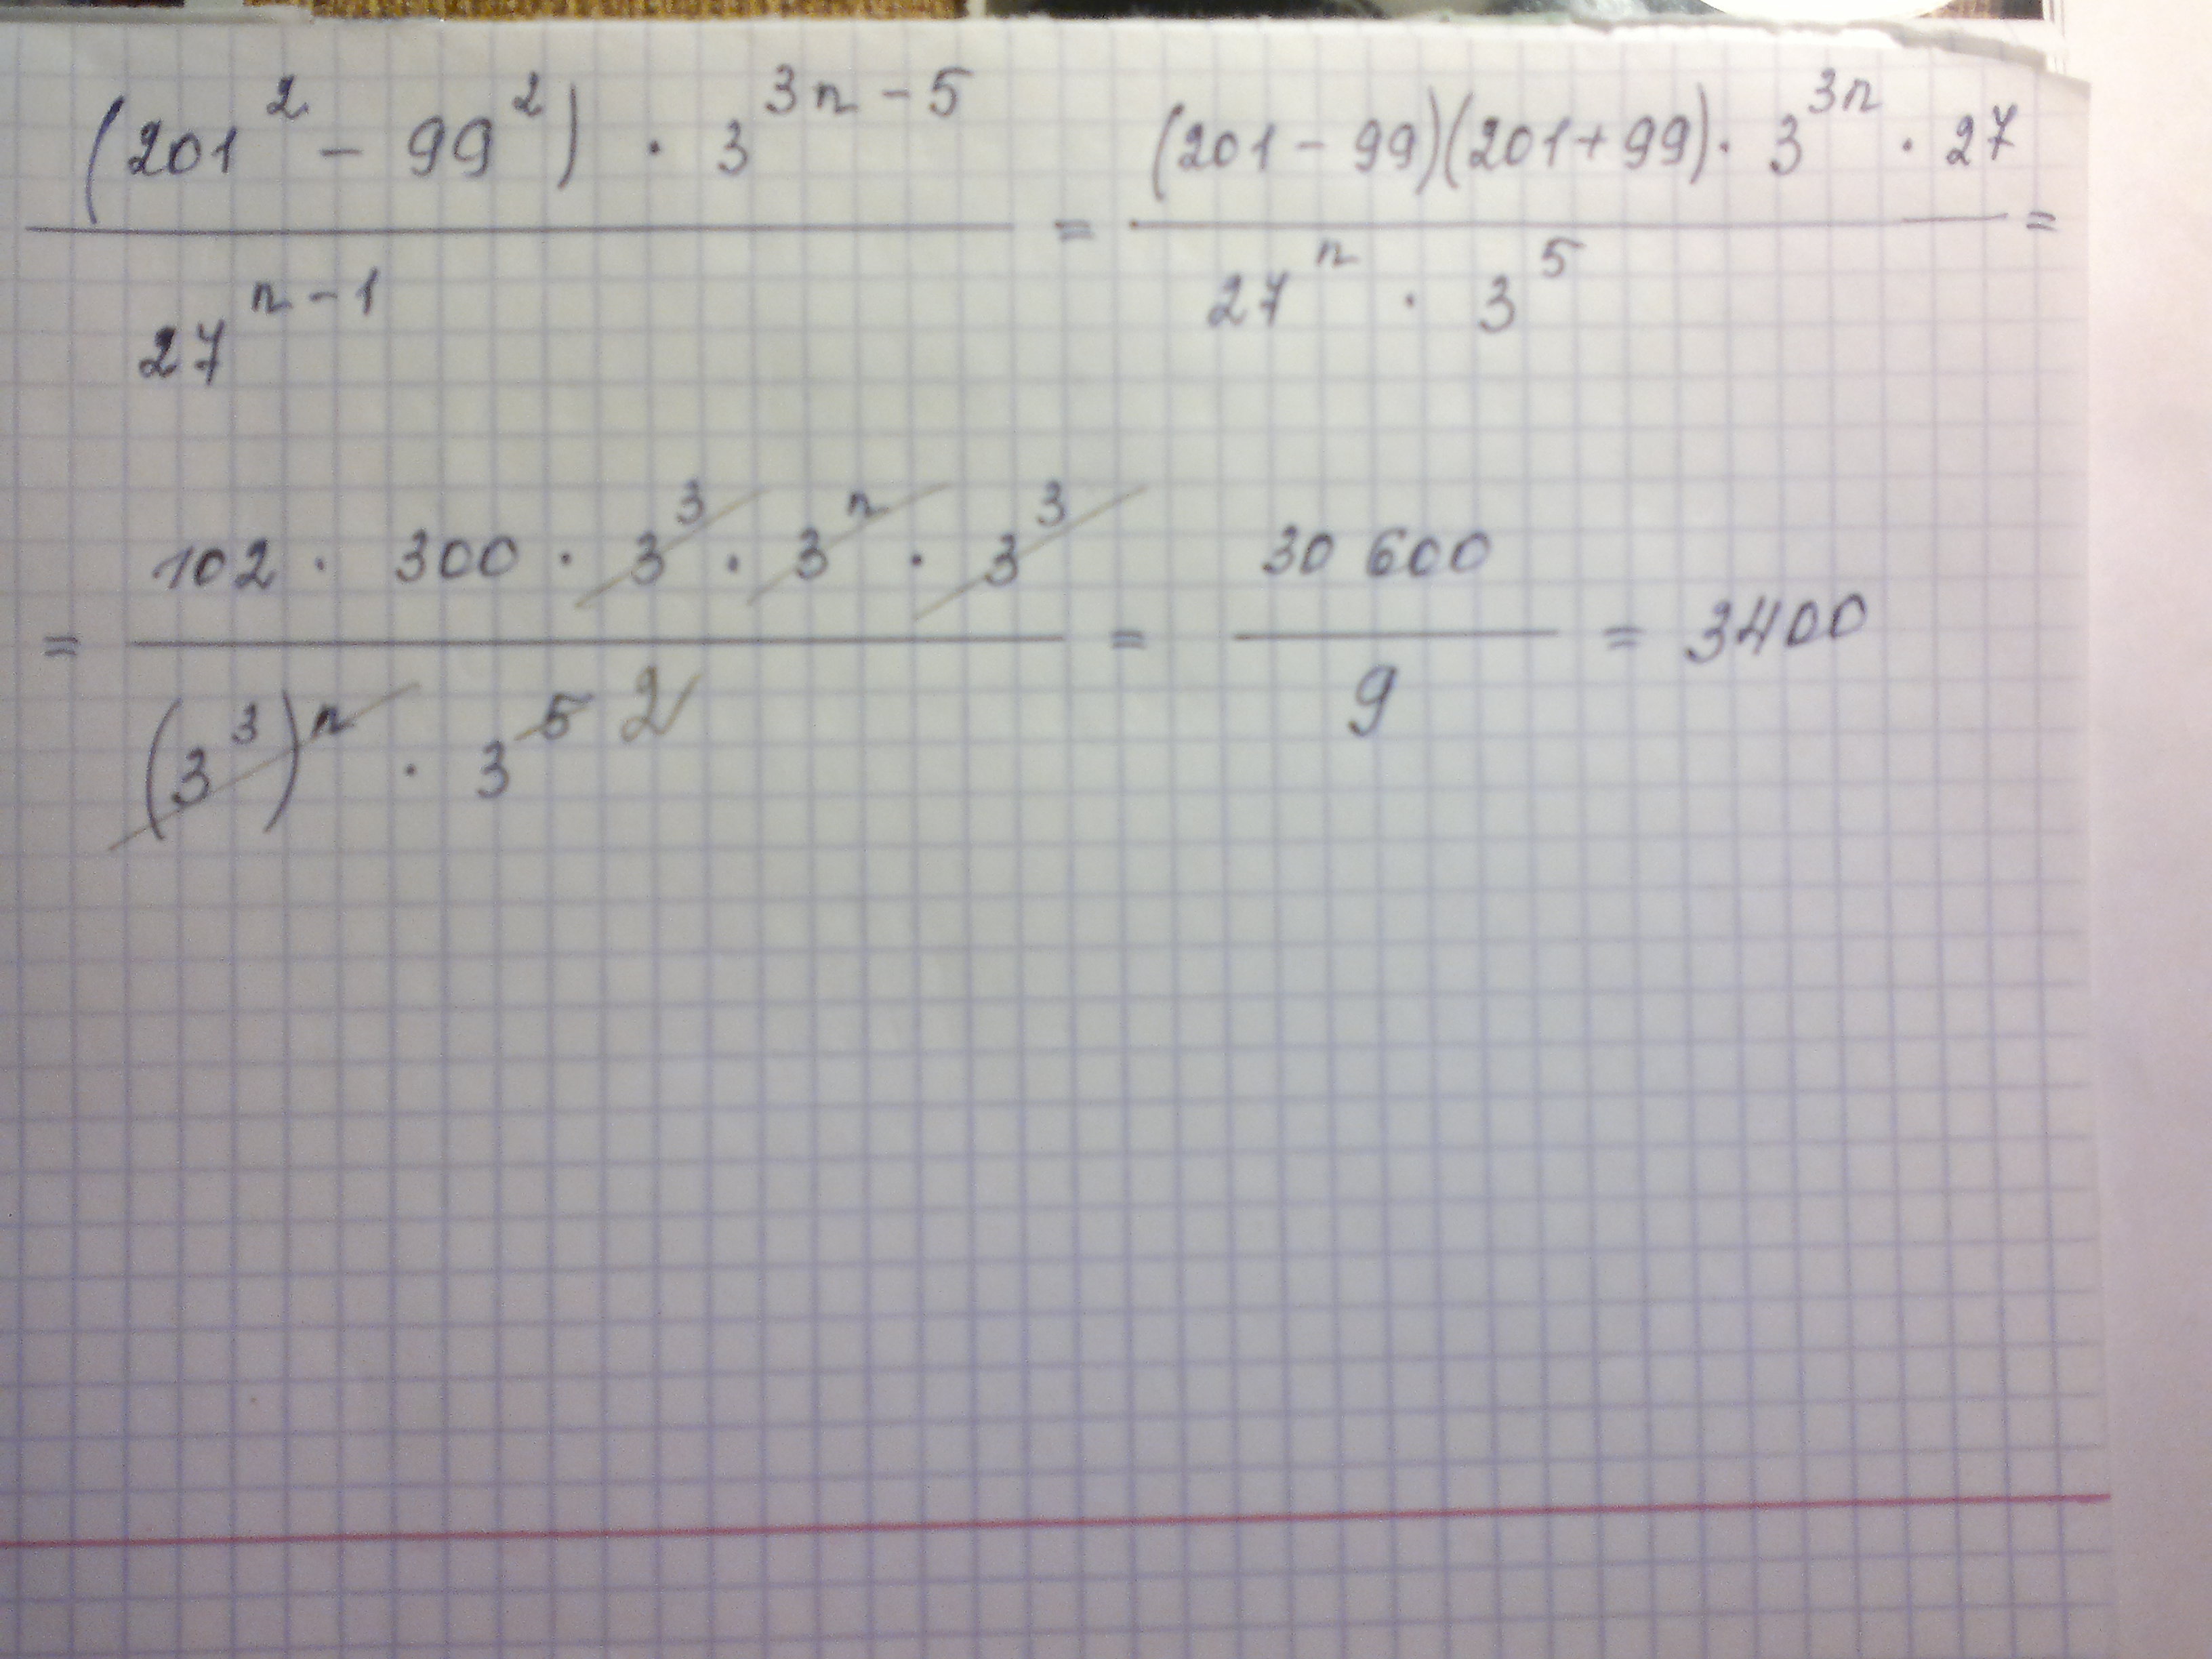 (201² - 99²) · 3³ⁿ⁻⁵ / 27ⁿ⁻¹ = (201 - 99)(201 + 99) · 3³ⁿ · 27 / 27ⁿ · 3⁵ =
= 102 · 300 · 3³ · 3ⁿ · 3³ / (3³)ⁿ · 3⁵ 2 = 30 600 / 9 = 3400